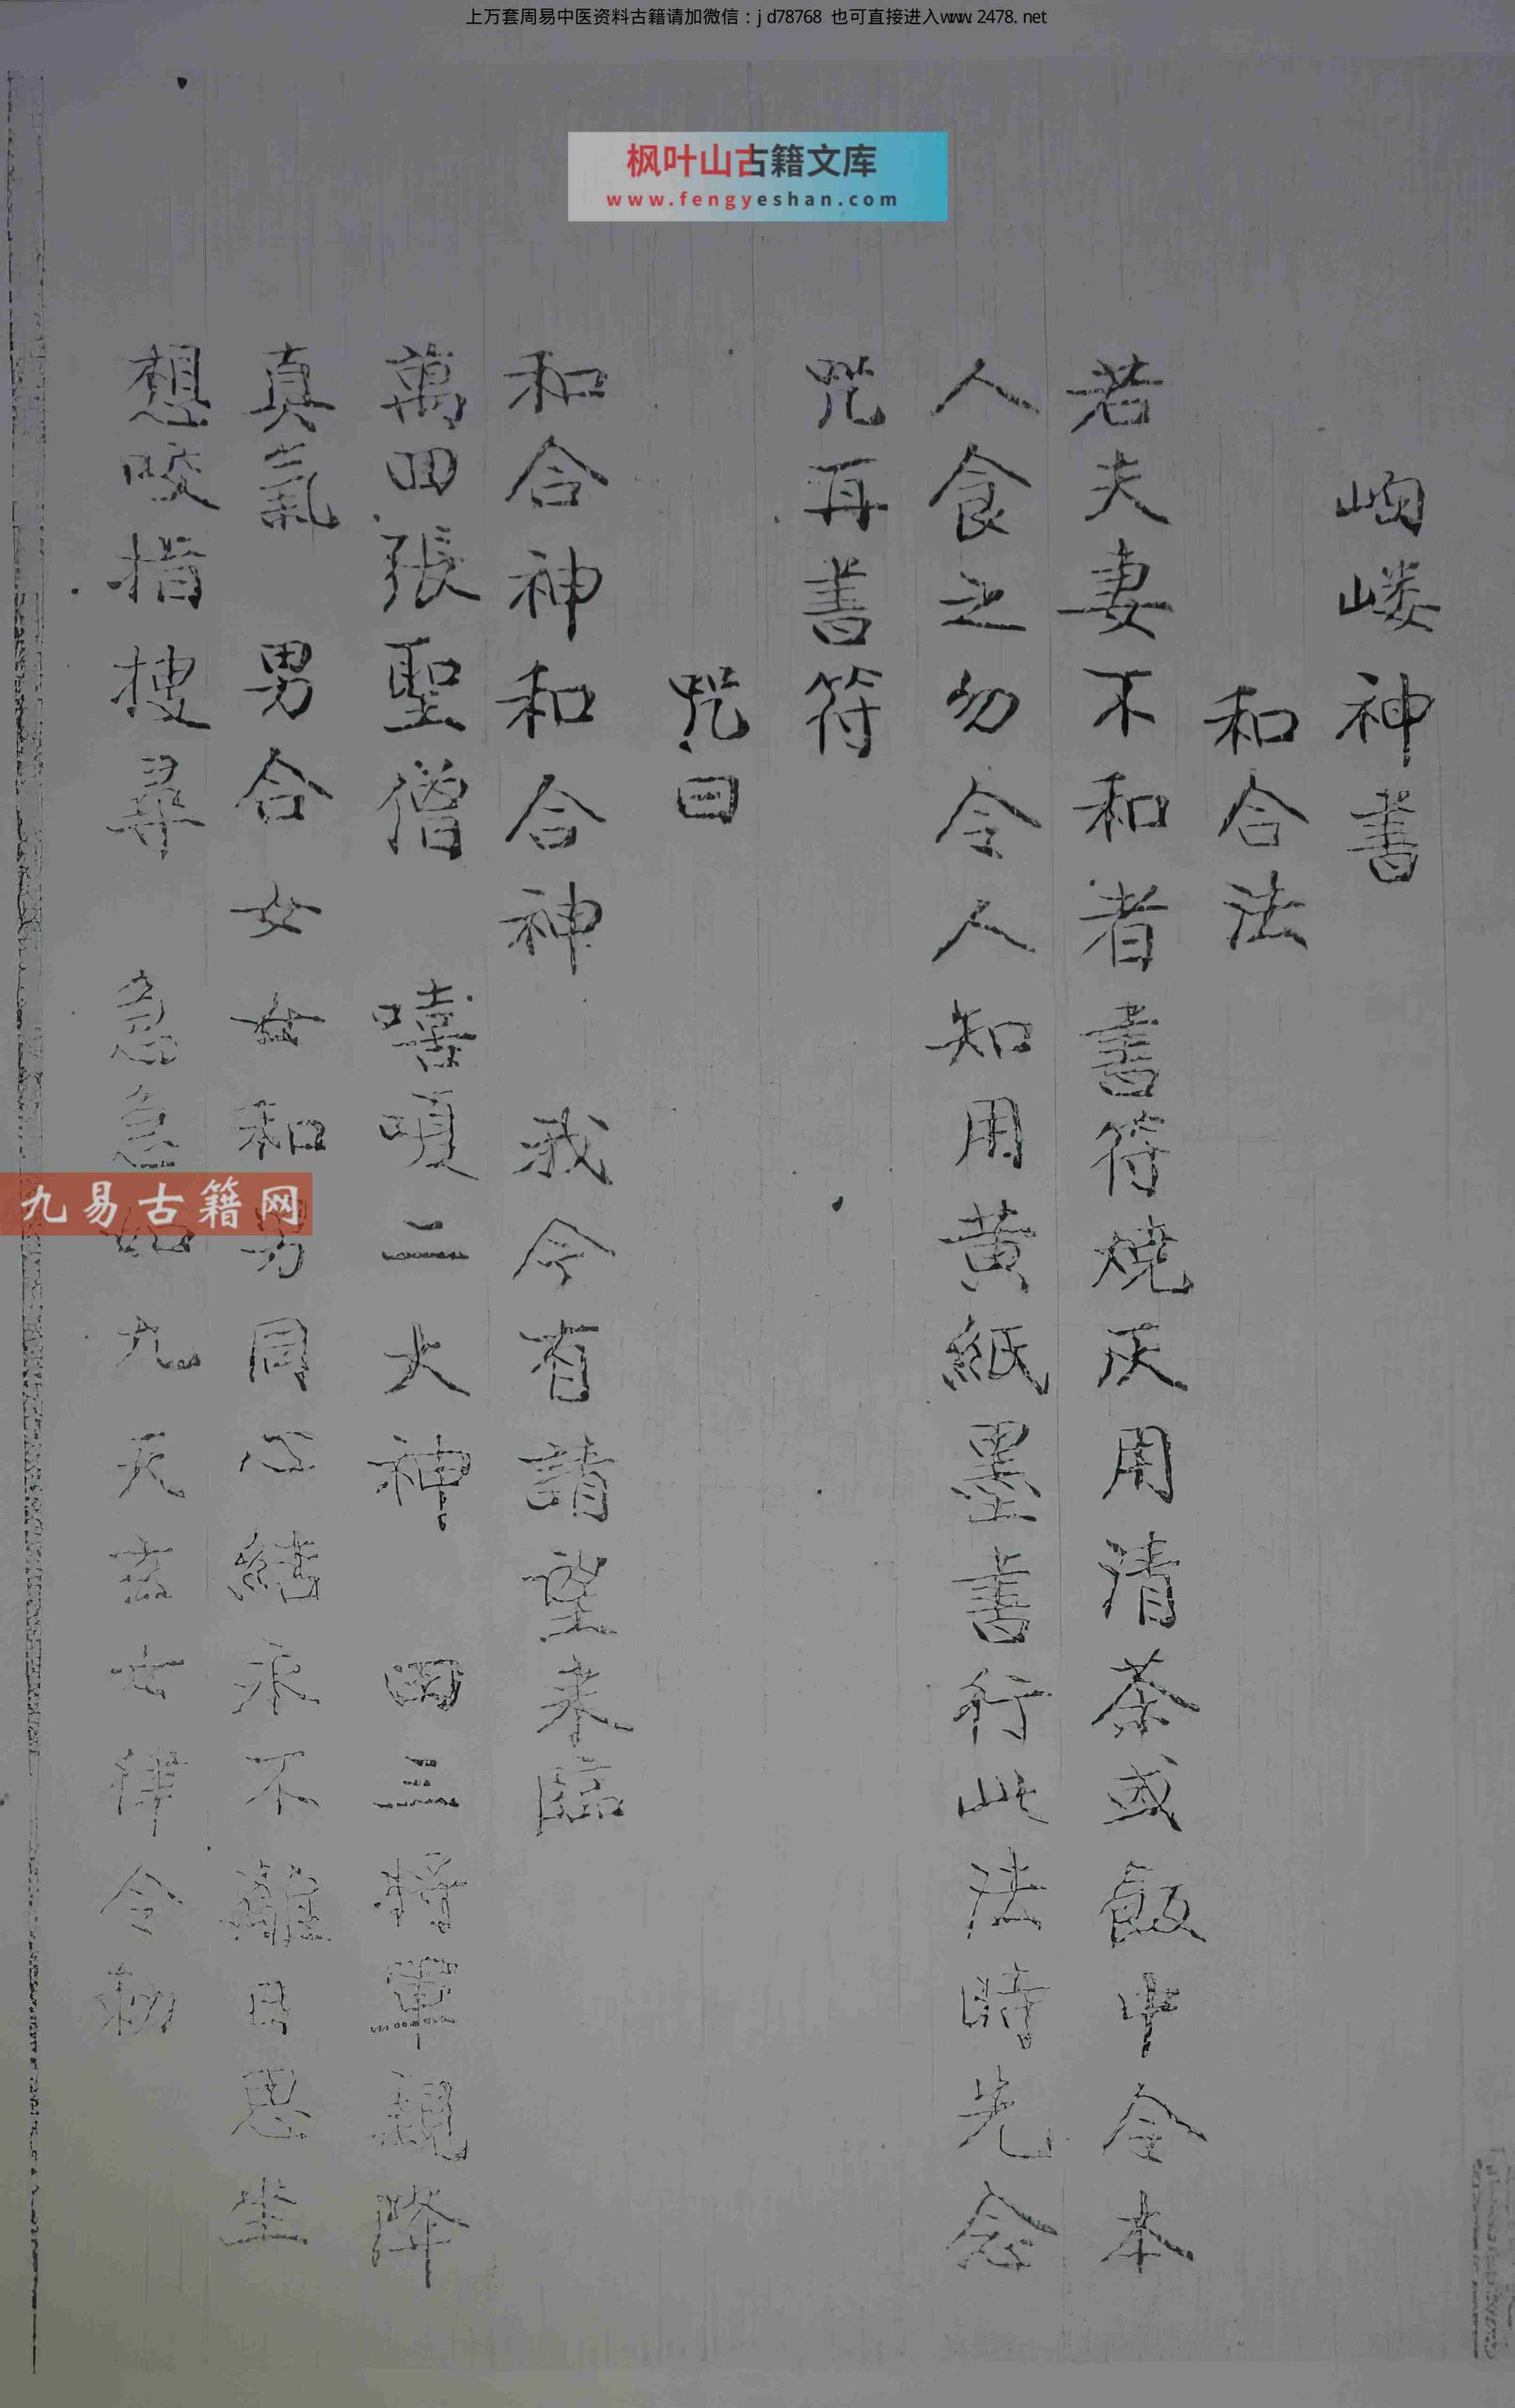 上万套周易中医资料古籍请加微信：jd78768 也可直接进入www.2478.net
枫叶山古籍文库
www.fengyeshan.com
岣嶁神書
和合法
若夫妻不和者書符燒灰用清茶或飯中令本
人食之勿令人知用黄紙墨書行此法時先念
咒再書符
咒曰
和合神和合神 我今有請望來臨
萬回張聖僧 嘻 二大神 田三 軍親降
真炁 男合女女和男同心結永不離日思坐
想咬指搜尋 急急如九天玄女律令勅
九易古籍网